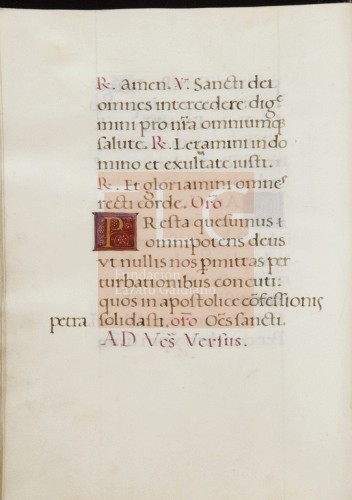 R. Amen. V. Sancti dei
omnes intercedere dige
mini pro nr̃a omniumq;
salute. R. Letamini in do
mino et exultate iusti.
R. Et gloriamini omnes
recti corde. Oro
PResta quesumus
omnipotens deus
vt nullis nos p̃mittas per
turbationibus concuti:
quos in apostolice cõfessionis
petra solidasti. oro Oẽs sancti.
AD Ves̃ Versus.
Fundación
Lázaro Galdiano